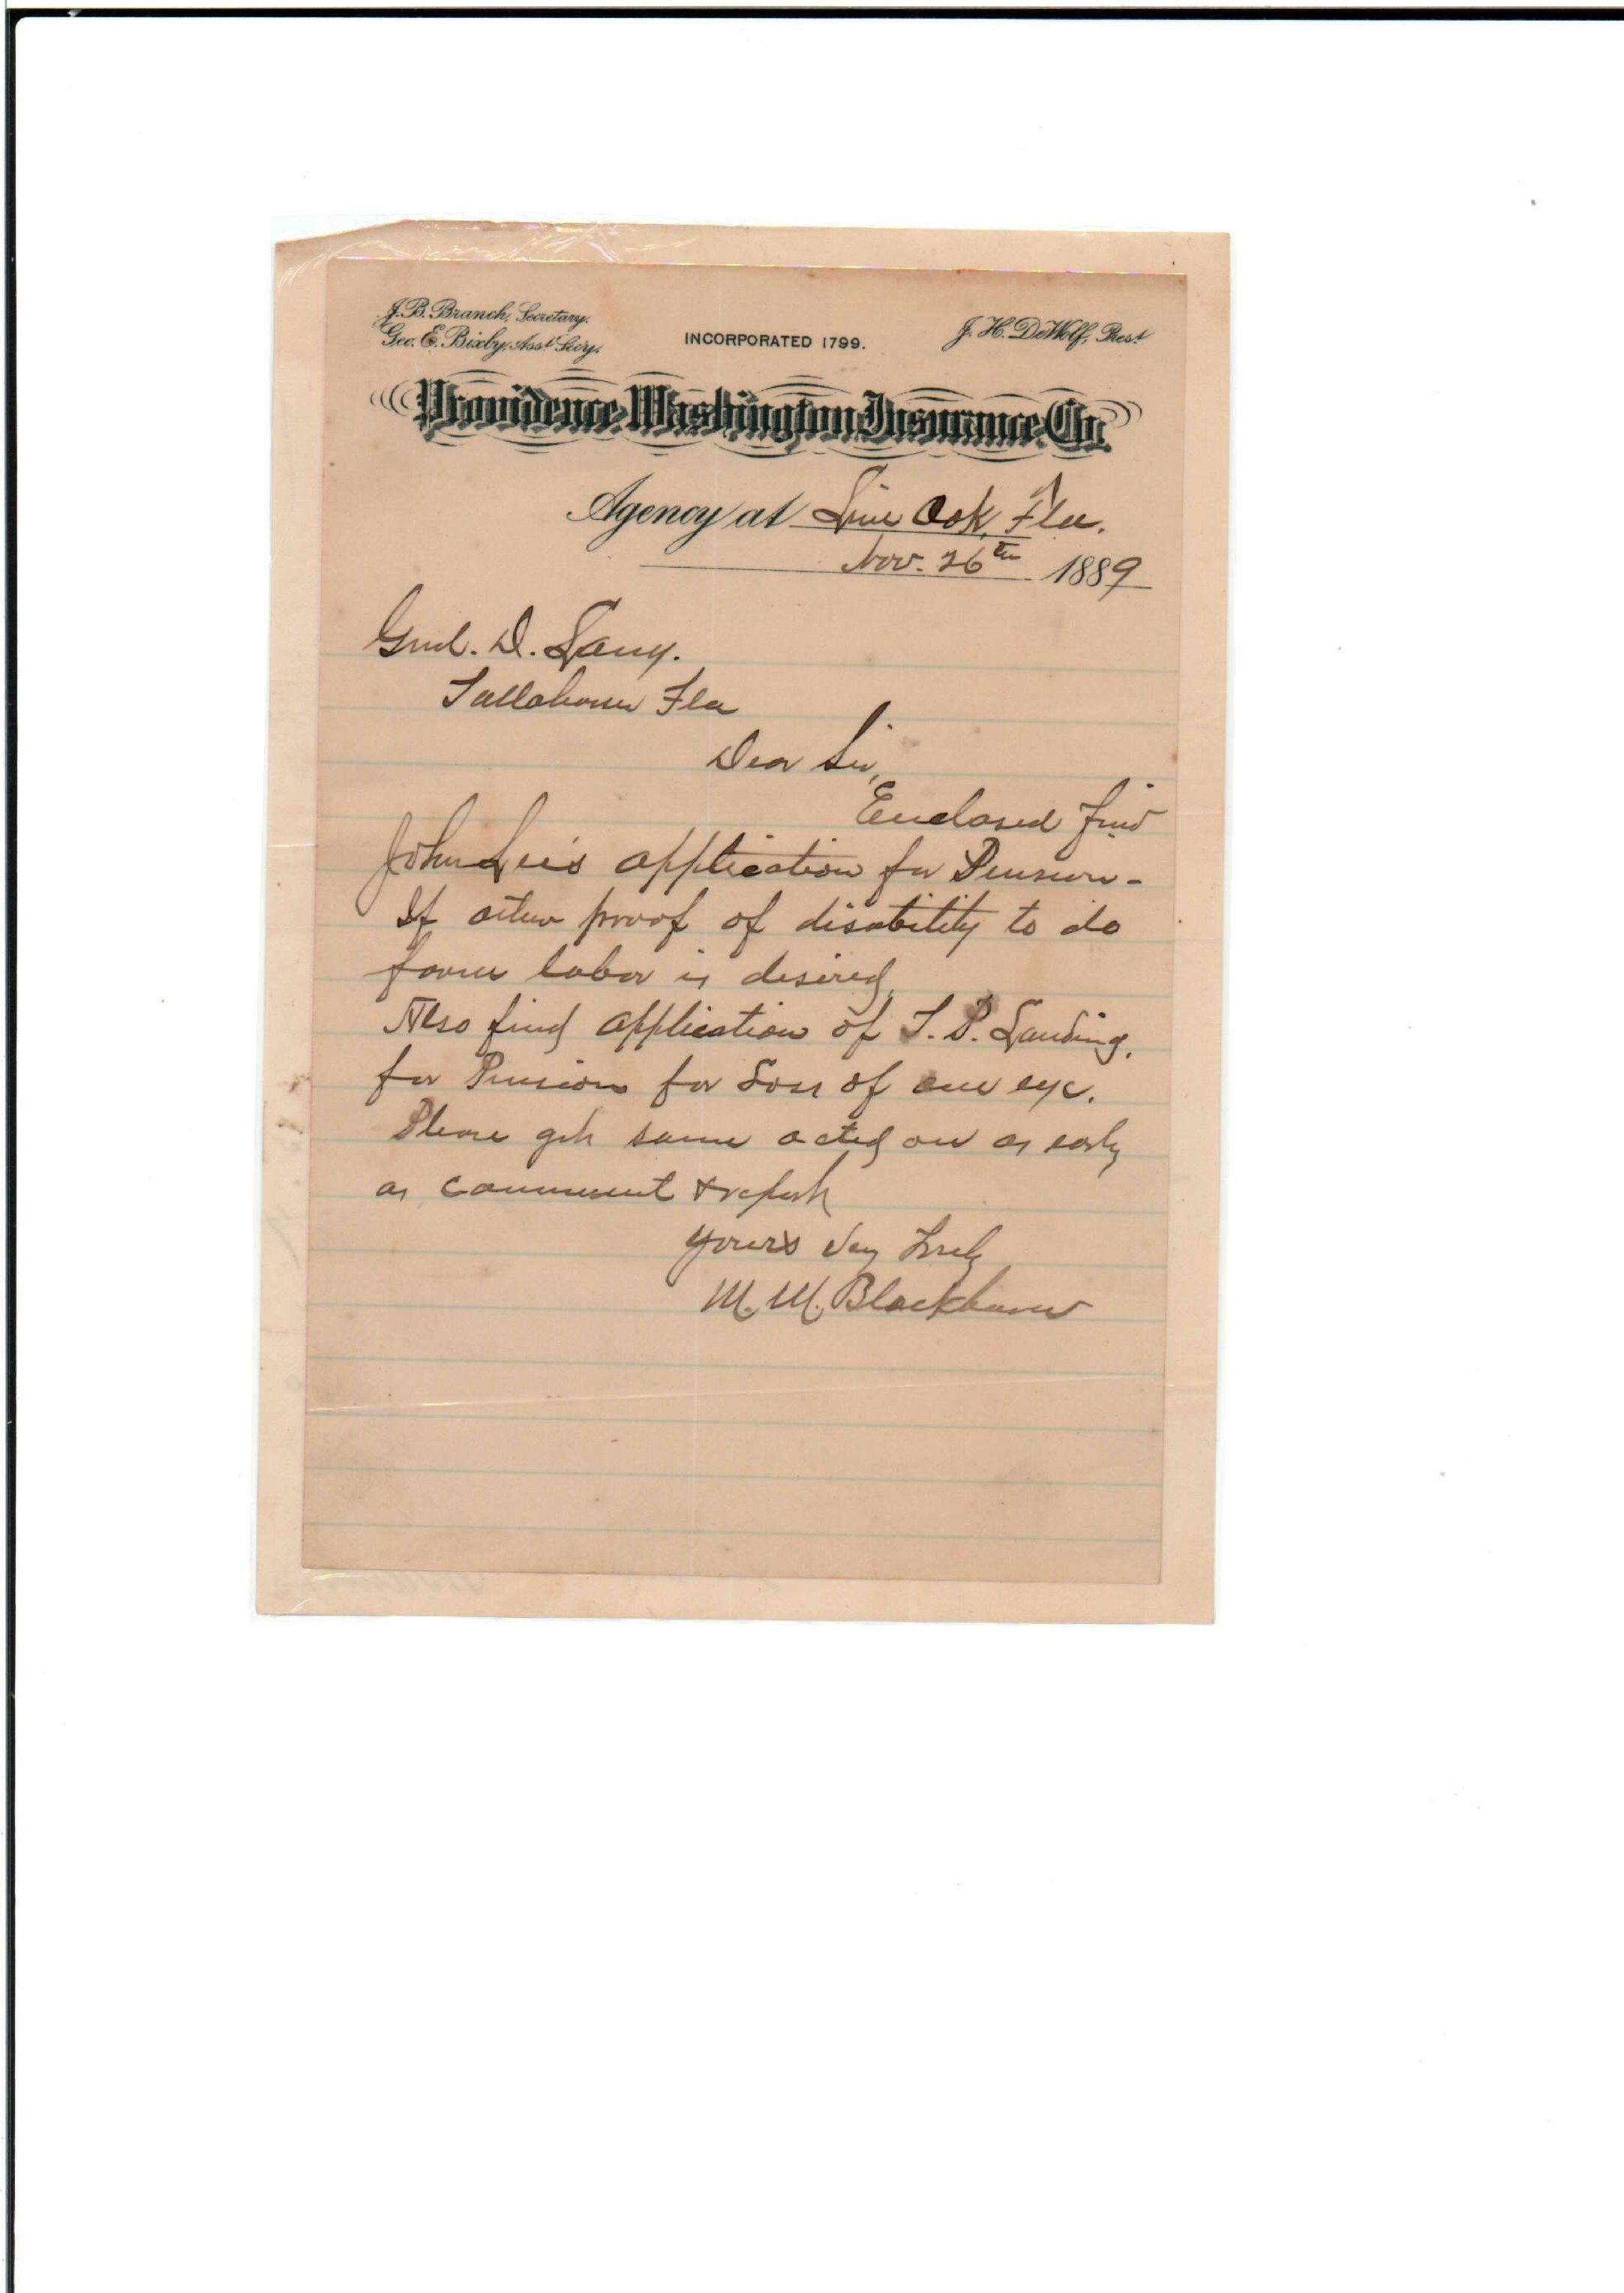 J. B. Branch, Secretary.
Geo. E. Bixby, Ass't Secy.
INCORPORATED 1799.
J. H. DeWolf, Pres't
Providence Washington Insurance Co.
Agency at Live Oak, Fla.
Nov. 26th 1889
Genl. D. Lang.
Tallahassee Fla
Dear Sir,
Enclosed find
John Lee's application for Pension -
If other proof of disability to do
farm labor is desired,
Also find application of T. P. Landing,
for Pension for Loss of one eye.
Please get same acted on as early
as convenient & report
Yours Very Truly
M. M. Blackburn